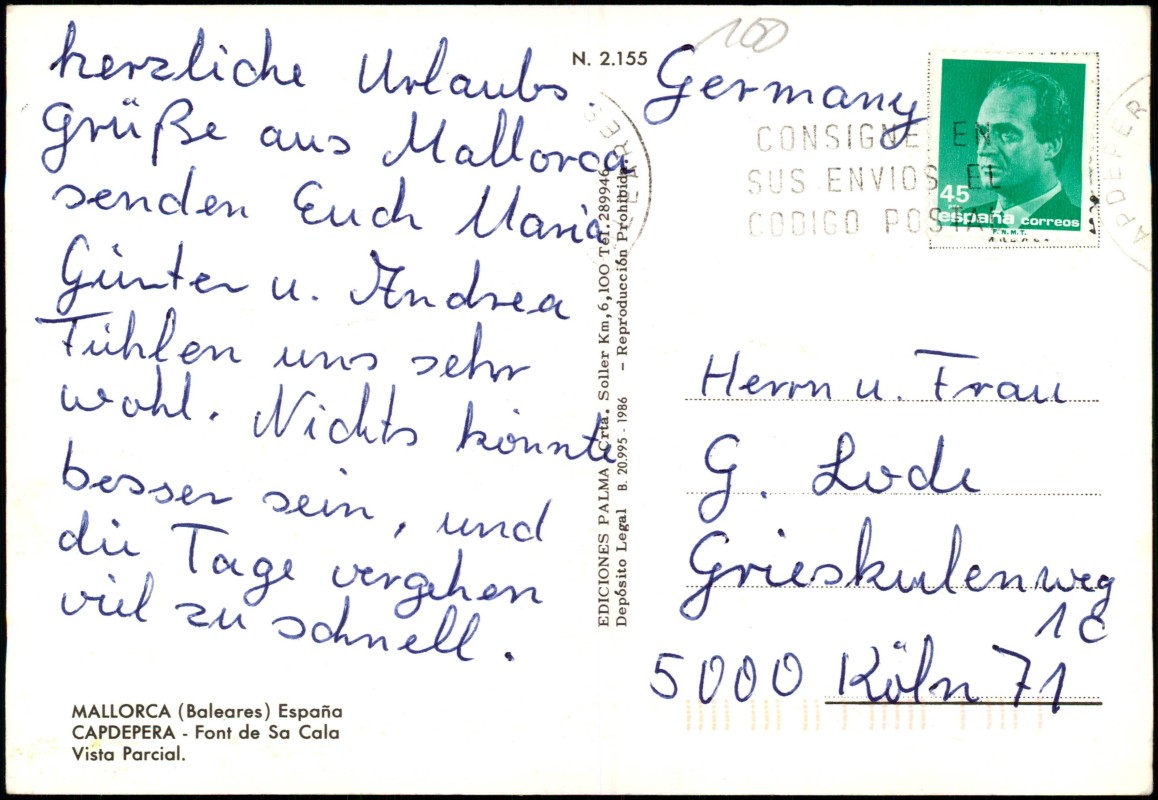 herzliche Urlaubs-
Grüße aus Mallorca
senden Euch Maria
Günter u. Andrea
Fühlen uns sehr
wohl. Nichts könnte
besser sein, und
die Tage vergehen
viel zu schnell.
MALLORCA (Baleares) España
CAPDEPERA - Font de Sa Cala
Vista Parcial.
N. 2.155
EDICIONES PALMA Crta. Soller Km, 6,100 Tel. 289946
Depósito Legal B. 20.995 - 1986 - Reproducción Prohibida
100
Germany
CONSIGNE EN
SUS ENVIOS EL
CODIGO POSTAL
45
españa correos
F.N.M.T.
Herrn u. Frau
G. Lode
Grieskulenweg
1c
5000 Köln 71